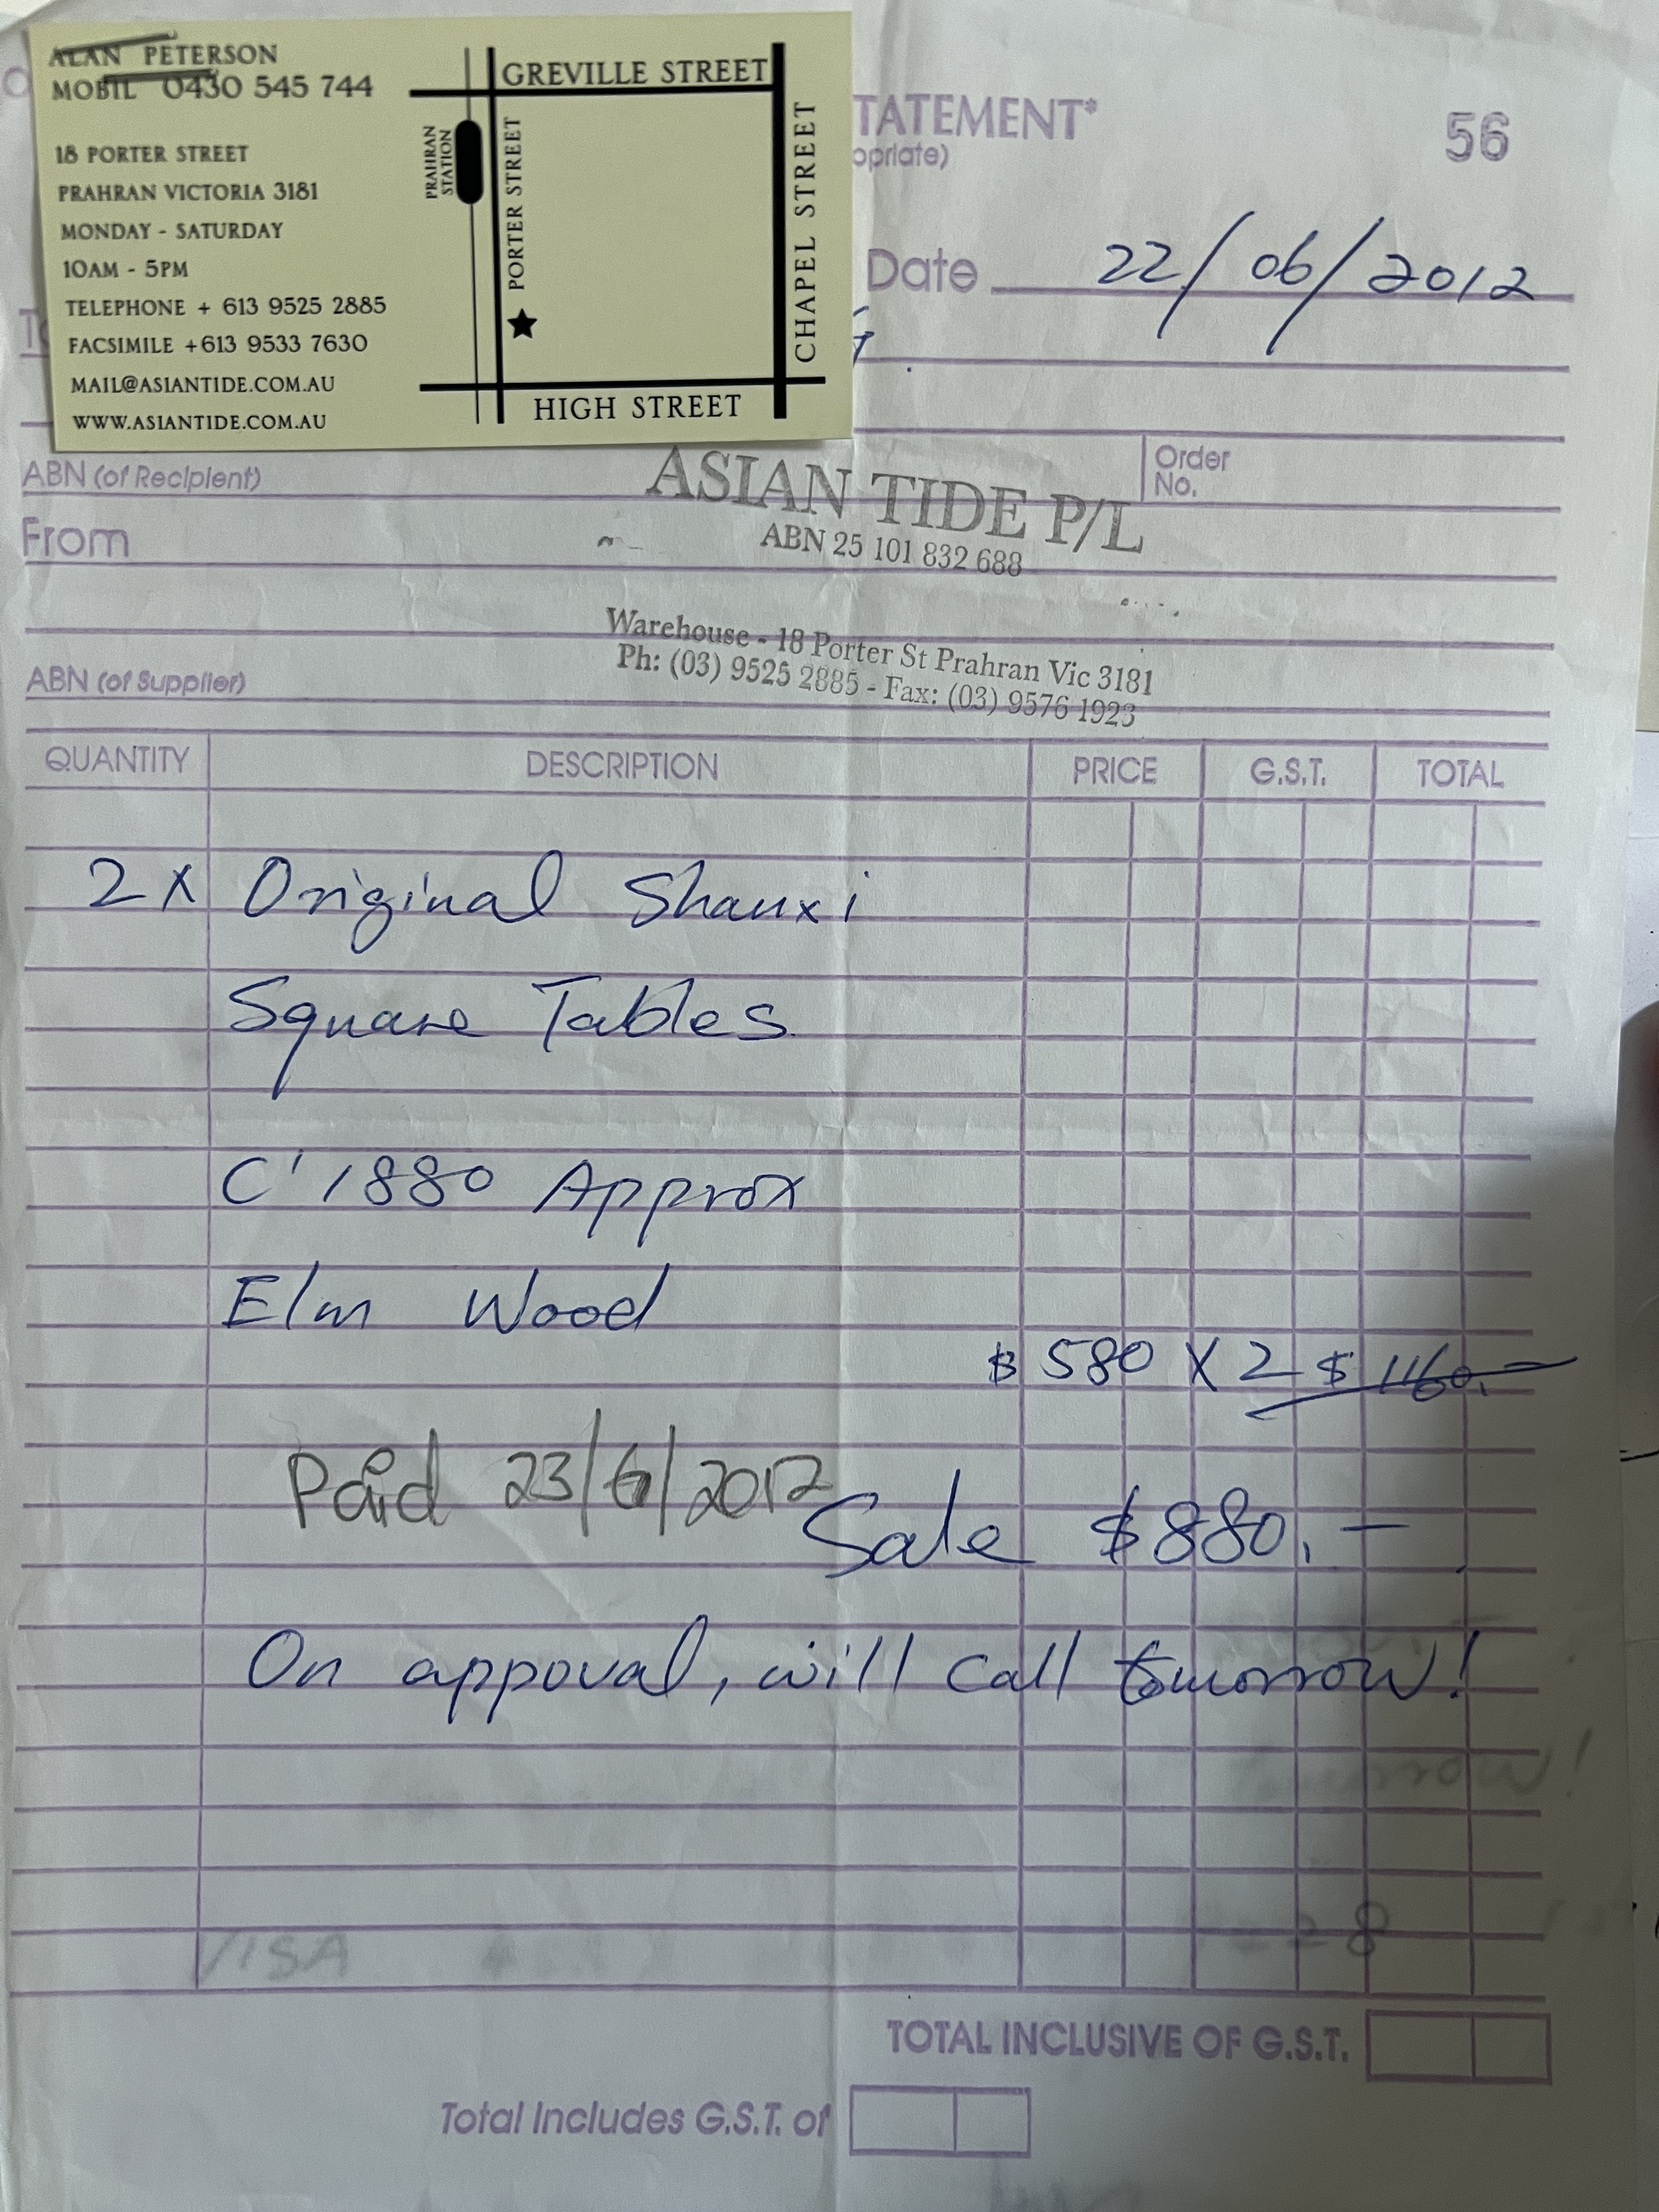 ALAN PETERSON
MOBIL 0430 545 744
18 PORTER STREET
PRAHRAN VICTORIA 3181
MONDAY - SATURDAY
10AM - 5PM
TELEPHONE + 613 9525 2885
FACSIMILE +613 9533 7630
MAIL@ASIANTIDE.COM.AU
WWW.ASIANTIDE.COM.AU
GREVILLE STREET
PRAHRAN
STATION
PORTER STREET
CHAPEL STREET
HIGH STREET
TATEMENT*
opriate)
56
Date 22/06/2012
ABN (of Recipient)
Order
No.
ASIAN TIDE P/L
ABN 25 101 832 688
From
Warehouse - 18 Porter St Prahran Vic 3181
Ph: (03) 9525 2885 - Fax: (03) 9576 1923
ABN (of Supplier)
QUANTITY DESCRIPTION PRICE G.S.T. TOTAL
2 X Original Shanxi
Square Tables.
C' 1880 Approx
Elm Wood
$ 580 X 2 $ 1160.-
Paid 23/6/2012
Sale $880.-
On appoval, will call tomorrow!
VISA
TOTAL INCLUSIVE OF G.S.T.
Total Includes G.S.T. of